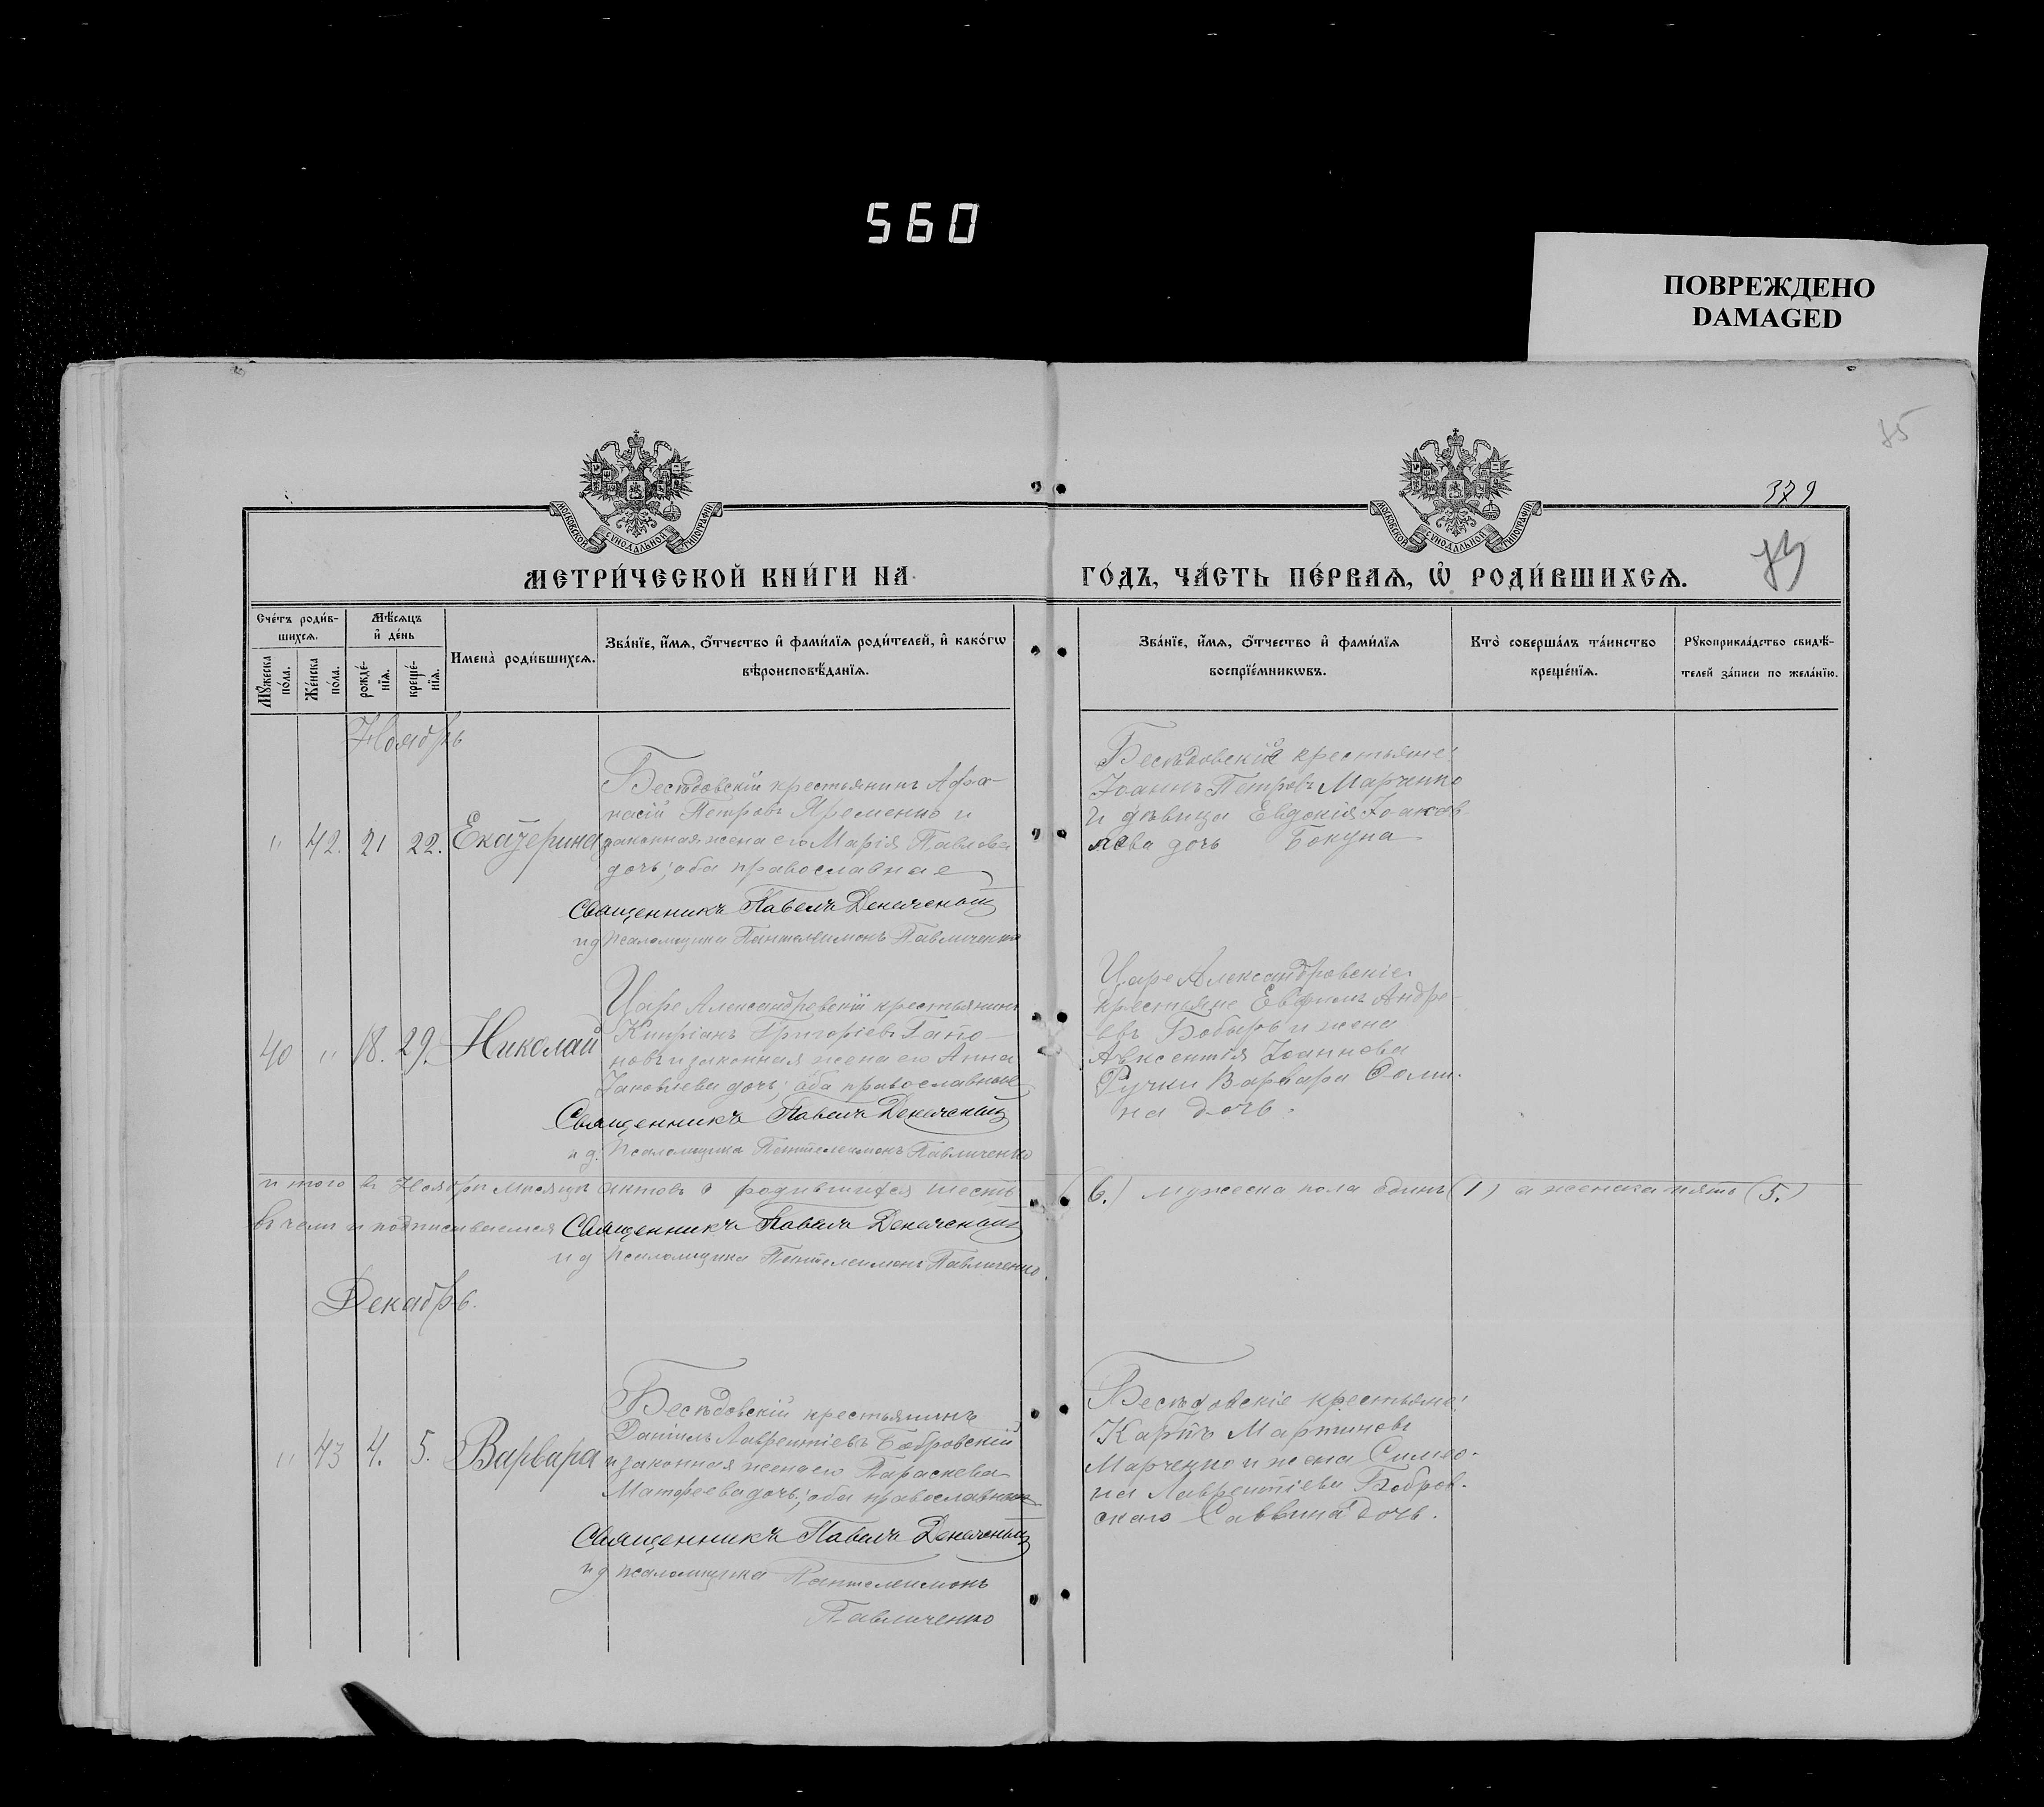 560
ПОВРЕЖДЕНО
DAMAGED
85
379
МОСКОВСКОЙ СУНОДАЛЬНОЙ ТИПОГРАФІИ
МОСКОВСКОЙ СУНОДАЛЬНОЙ ТИПОГРАФІИ
МЕТРИ́ЧЕСКОЙ КНИ́ГИ НА
ГО́ДЪ, ЧА́СТЬ ПЕ́РВАѦ, Ѡ РОДИ́ВШИХСѦ.
Сче́тъ роди́в-
шихсѧ.
Мꙋжеска по́ла.
Же́нска по́ла.
Мѣ́сѧцъ
и҆ де́нь
рожде́-
нїѧ.
креще́-
нїѧ.
Имена̀ роди́вшихсѧ.
Зва́нїе, и҆́мѧ, ѻ҆́тчество и҆ фами́лїѧ роди́телей, и҆ како́гѡ
вѣроисповѣ́данїѧ.
Зва́нїе, и҆́мѧ, ѻ҆́тчество и҆ фами́лїѧ
воспрїе́мникѡвъ.
Кто̀ соверша́лъ та́инство
креще́нїѧ.
Рꙋкоприкла́дство свидѣ́-
телей за́писи по жела́нїю.
Ноябрь
" 42. 21 22. Екатерина
Бесѣдовскій крестьянинъ Афа-
насій Петровъ Яременко и
законная жена его Марія Павлова
дочь; оба православные
Священникъ Павелъ
и д Псаломщика Пантелеимонъ Павличенко
Бесѣдовскіе крестьяне:
Іоаннъ Петровъ Марченко
и дѣвица Евдокія Іоаков
лева дочь Бокуна
40 " 18. 29. Николай
Царе Александровскій крестьянинъ
Кипріанъ Григоріевъ Гапо-
новъ и законная жена его Анна
Іаковлева дочь; оба православные
Священникъ Павелъ
и д. Псаломщика Пантелеимонъ Павличенко
Царе Александровскіе
крестьяне Евфимъ Андре-
евъ Бобырь и жена
Авксентія Іоаннова
Ручки Варвара Фоми-
на дочь.
и того въ Ноябрѣ мѣсяцѣ актовъ о родившихся шесть
(6.) мужеска пола одинъ (1) а женска пять (5.)
въ чемъ и подписываемся Священникъ Павелъ
и д Псаломщика Пантелеимонъ Павличенко.
Декабрь.
" 43 4. 5. Варвара
Бесѣдовскій крестьянинъ
Даніилъ Лаврентіевъ Бобровскій
и законная жена его Параскева
Матфеева дочь; оба православные
Священникъ Павелъ
и д псаломщика Пантелеимонъ
Павличенко
Бесѣдовскіе крестьяне:
Карпъ Мартиновъ
Марченко и жена Симео-
на Лаврентіева Бобров-
скаго Саввина дочь.